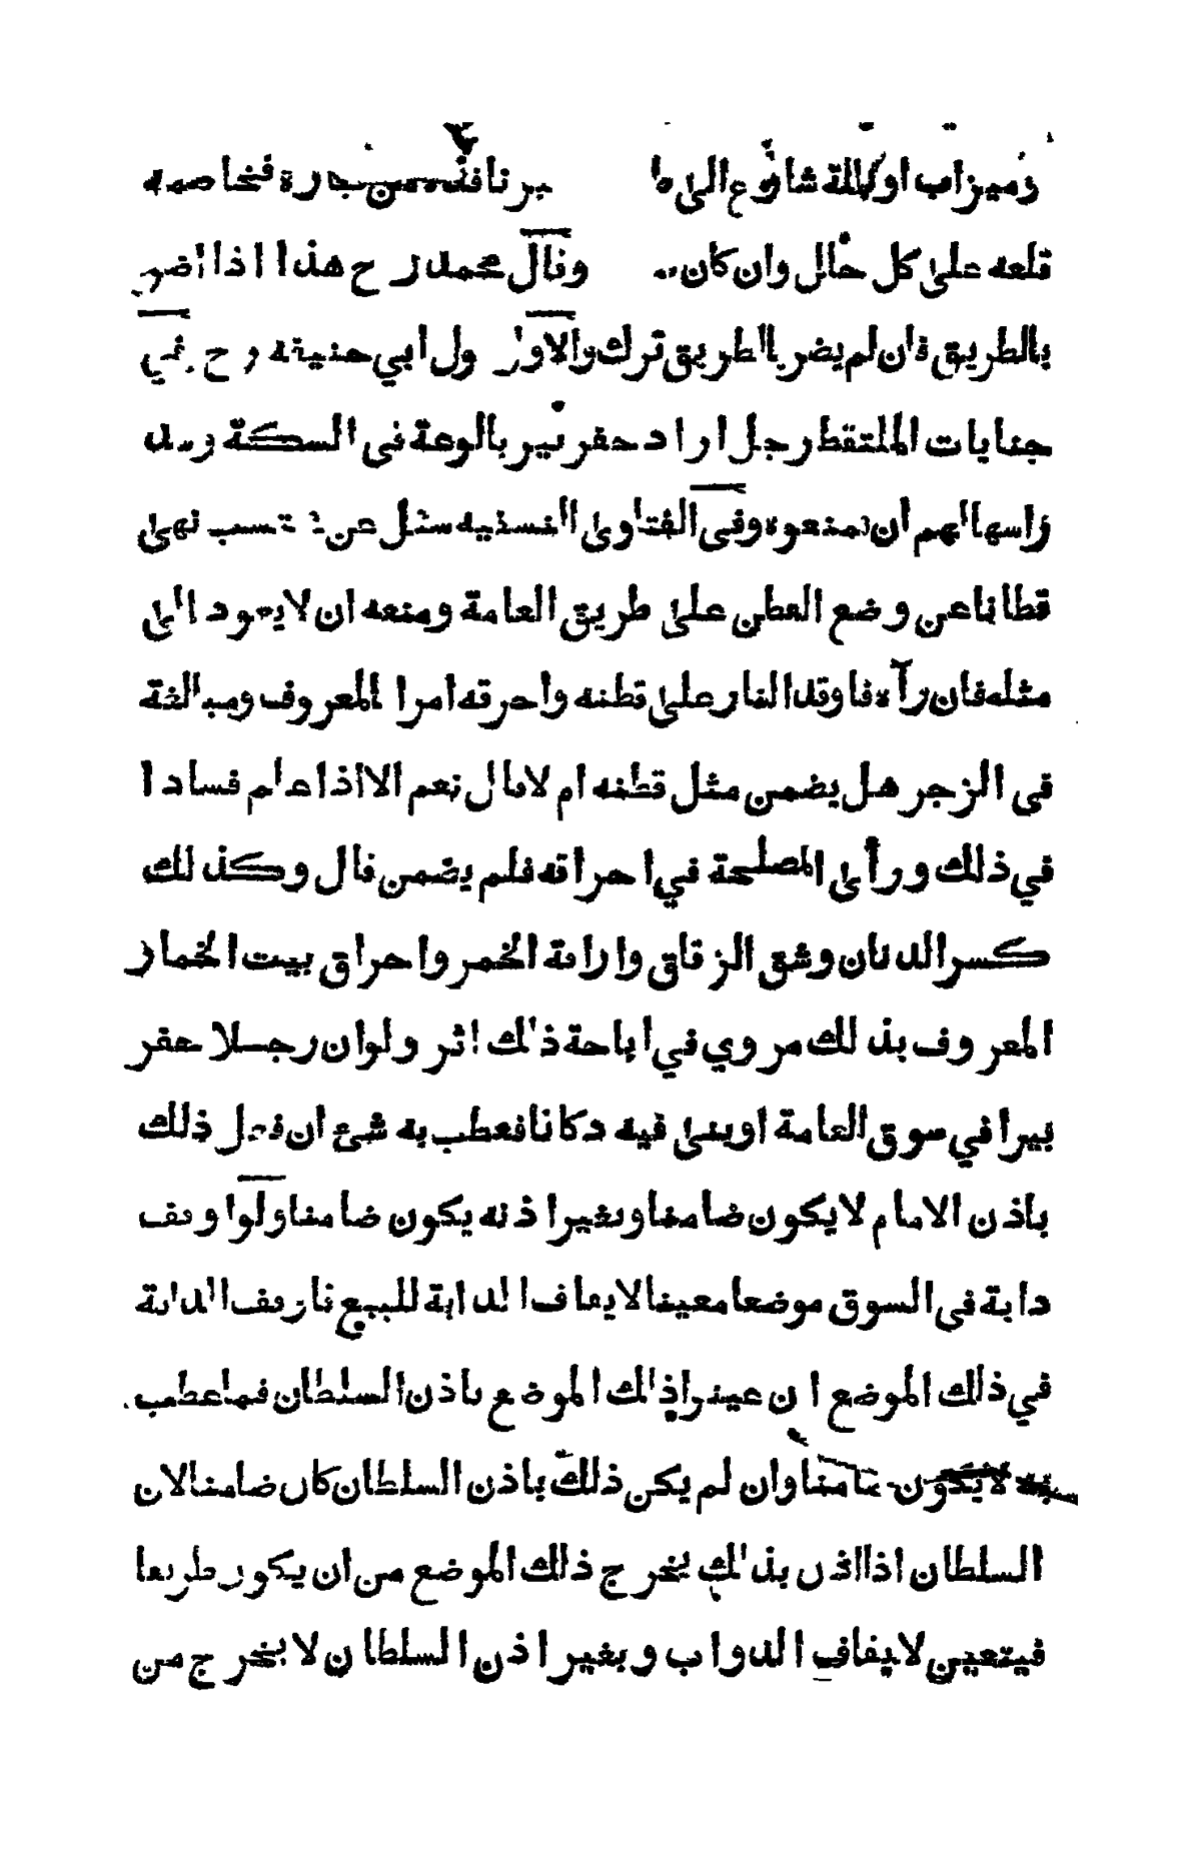 وميزاب او كلة شارع الى غير نافذ من جاره فخاصمه
قلعه على كل حال وان كان وقال محمد رح هذا اذا اضر
بالطريق فان لم يضر بالطريق ترك والاول قول ابي حنيفة رح في
جنايات الملتقط رجل اراد حفر بير بالوعة فى السكة
راسها لهم ان يمنعوه وفى الفتاوى النسفيه سئل عن محتسب نهى
قطانا عن وضع القطن على طريق العامة ومنعه ان لا يعود الى
مثله فان رآه فاوقد النار على قطنه واحرقه امرا المعروف ومبالغة
فى الزجر هل يضمن مثل قطنه ام لا قال نعم الا اذا علم فسادا
في ذلك ورأى المصلحة في احراقه فلم يضمن قال وكذلك
كسر الدنان وشق الزقاق واراقة الخمر واحراق بيت الخمار
المعروف بذلك مروي في اباحة ذلك اثر ولو ان رجلا حفر
بيرا في سوق العامة او بنى فيه دكانا فعطب به شئ ان فعل ذلك
باذن الامام لا يكون ضامنا وبغير اذنه يكون ضامنا ولو اوقف
دابة فى السوق موضعا معينا لايقاف الدابة للبيع فاوقف الدابة
في ذلك الموضع ان عينوا ذلك الموضع باذن السلطان فما عطب
به لا يكون ضامنا وان لم يكن ذلك باذن السلطان كان ضامنا لان
السلطان اذا اذن بذلك يخرج ذلك الموضع من ان يكون طريقا
فيتعين لايقاف الدواب وبغير اذن السلطان لا يخرج من